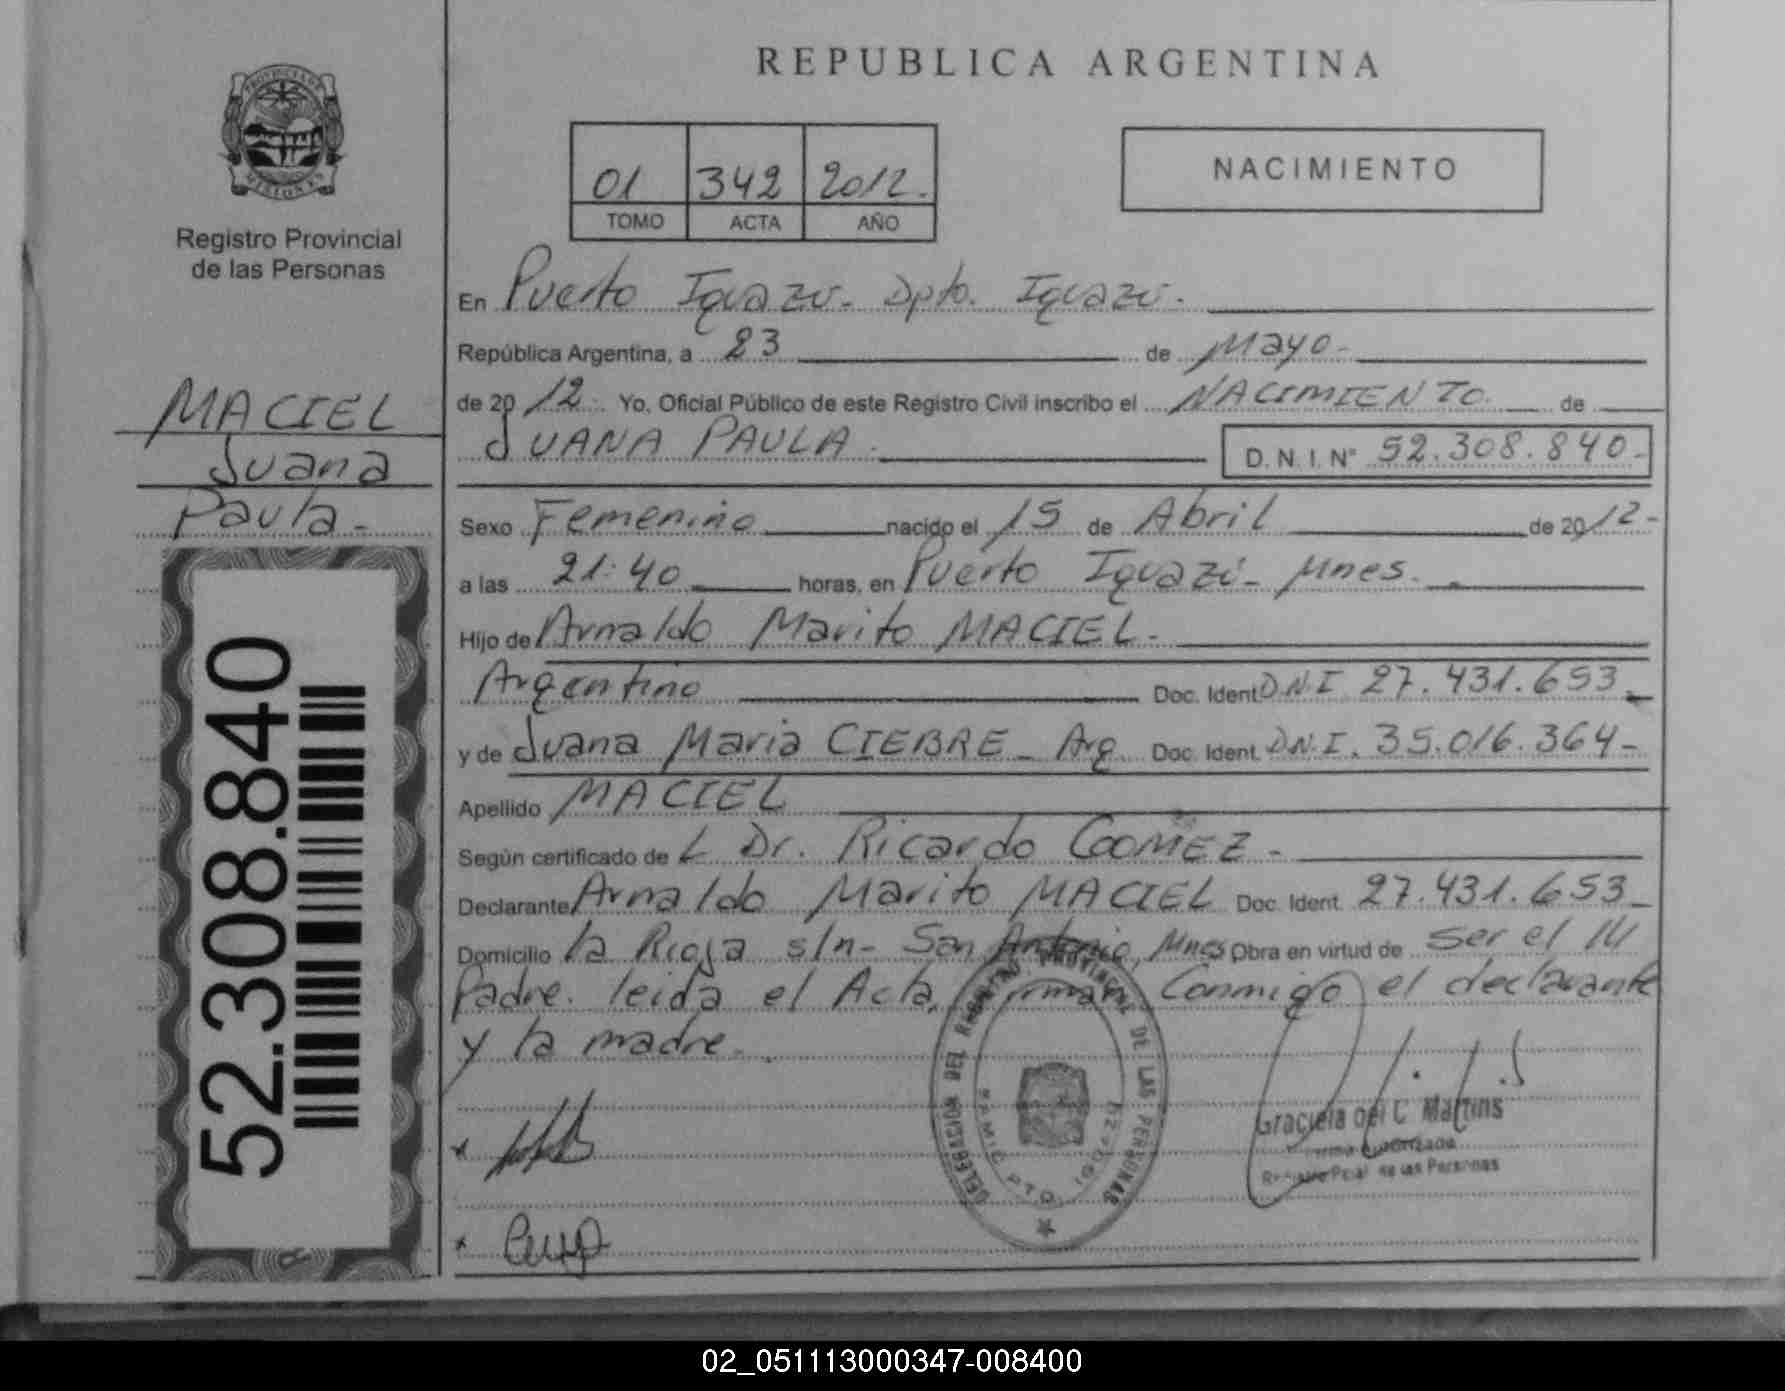 REPUBLICA ARGENTINA
PROVINCIA DE MISIONES
Registro Provincial
de las Personas
01 342 2012.
TOMO ACTA AÑO
NACIMIENTO
En Puerto Iguazú- Dpto. Iguazú.
República Argentina, a 23 de Mayo-
de 20 12 Yo, Oficial Público de este Registro Civil inscribo el NACIMIENTO de
JUANA PAULA. D. N. I. N° 52.308.840-
MACIEL
Juana
Paula-
Sexo Femenino nacido el 15 de Abril de 20 12-
a las 21:40 horas, en Puerto Iguazú- Mnes.
Hijo de Arnaldo Marito MACIEL-
Argentino Doc. Ident D.N.I 27.431.653
y de Juana Maria CIEBRE - Arg. Doc. Ident. D.N.I. 35.016.364-
Apellido MACIEL
Según certificado de L Dr. Ricardo GOMEZ-
Declarante Arnaldo Marito MACIEL Doc. Ident. 27.431.653-
Domicilio la Rioja s/n- San Antonio, Mnes Obra en virtud de ser el
Padre. leida el Acta, firman Conmigo el declarante
y la madre.
52.308.840
DELEGACION DEL REGISTRO PROVINCIAL DE LAS PERSONAS
PTO. IGUAZU
Graciela del C Martins
Firma Autorizada
Registro Pcial de las Personas
02_051113000347-008400